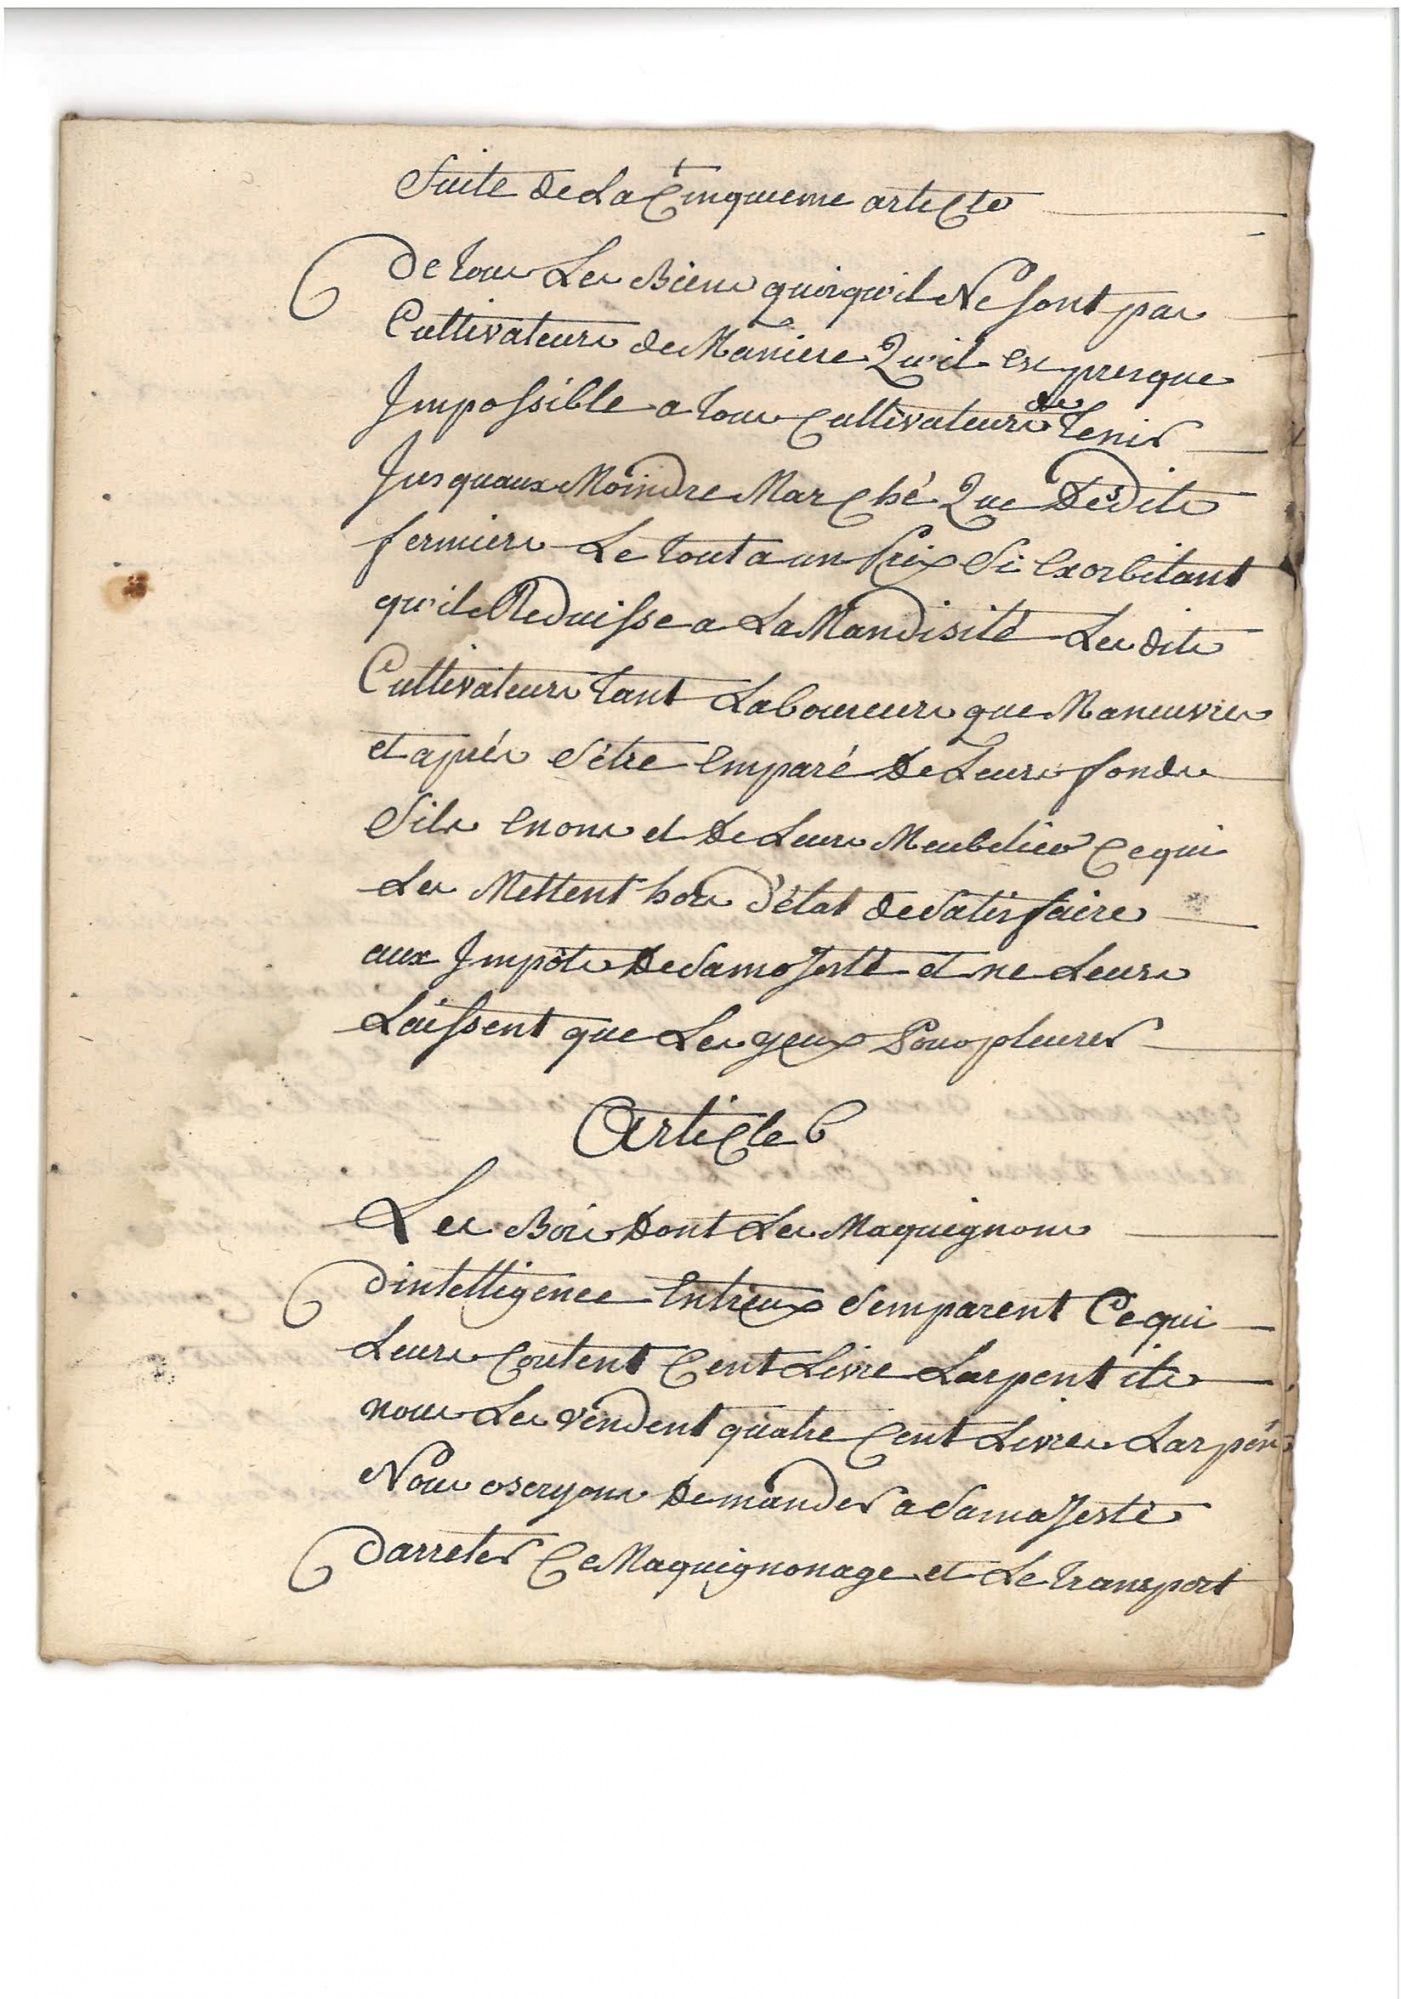 Suite de La Cinquieme article
De tous Les Biens quoiqu'il Ne sont pas
Cultivateurs de Maniere Qu'il est presque
Impossible a tous Cultivateurs de Tenir
Jusquaux Moindre Marché Que Desdits
fermiers Le tout a un Prix Si Exorbitant
qu'ils Reduisse a La Mandisité Les dits
Cultivateurs tant Laboureurs que Maneuvres
et après S'être Emparé De Leurs fonds
S'ils En ons et De Leurs Meubelier Ce qui
Les Mettent hors d'état de Satisfaire
aux Impôts De Sa maJesté et ne Leurs
Laissent que Les yeux Pour pleurer
Article 6
Les Bois Dont Les Maquignons
d'intelligence Entreux S'emparent Ce qui
Leurs Coutent Cent Livre Larpent ils
nous Les vendent quatre Cent Livres Larpen
Nous oseryons Demander a Sa maJesté
Darreter Ce Maquignonage et Le transport